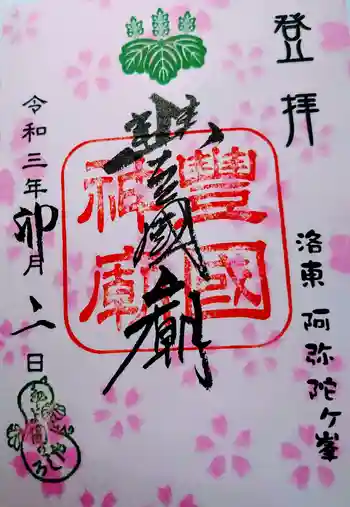 登拝
洛東 阿弥陀ヶ峯
豊國廟
豐國
神廟
令和三年卯月二日